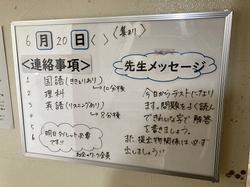 6月20日< >(集まり)
<連絡事項>
1 国語(ききとりあり)
→10分後
2 理科
3 英語(リスニングあり)
→8分後
4
5
6
明日タブレット必要
です!!
先生メッセージ
今日からテストになり
ます。問題をよく読ん
できれいな字で解答
を書きましょう。
また提出物関係は必ず
出しましょう!